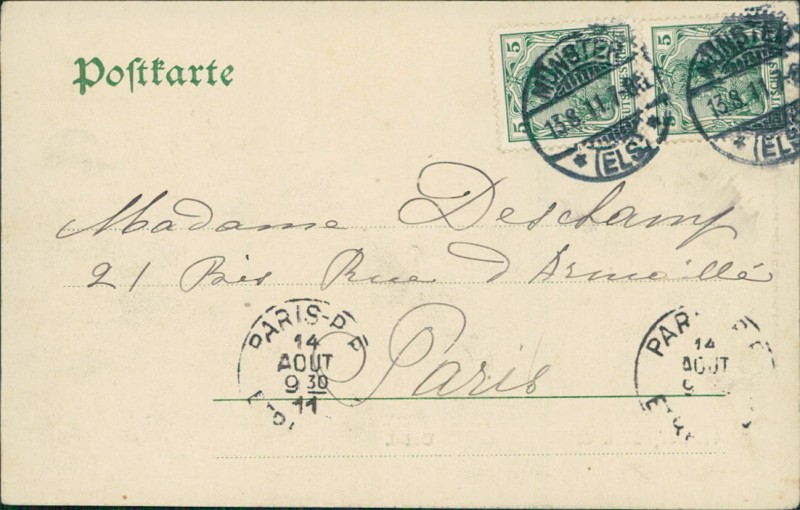 Postkarte
5 5
MÜNSTER
13.8.11.
* (ELS) *
5
MÜNSTER
13.8.11
* (ELS
Madame Deschamp
21 Bis Rue d'Armaillé
Paris
PARIS-
14
AOUT
9 30
11
PAR
14
AOUT
9